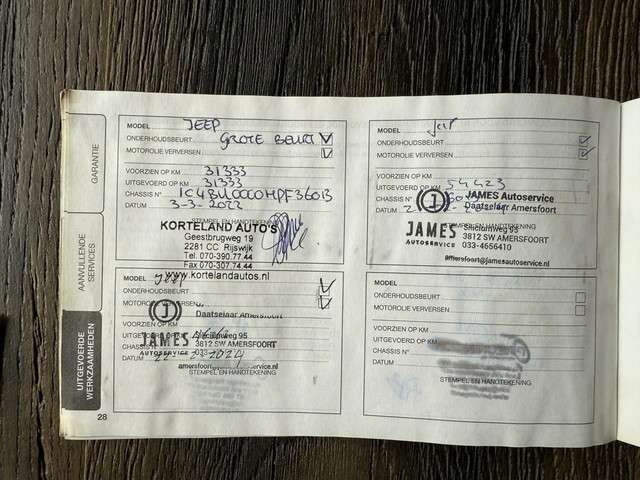 GARANTIE
AANVULLENDE
SERVICES
UITGEVOERDE
WERKZAAMHEDEN
28
MODEL JEEP
ONDERHOUDSBEURT GROTE BEURT
MOTOROLIE VERVERSEN
VOORZIEN OP KM 31333
UITGEVOERD OP KM 31333
CHASSIS N°
DATUM 3-3-2022
STEMPEL EN HANDTEKENING
KORTELAND AUTO'S
Geestbrugweg 19
2281 CC Rijswijk
Tel. 070-390.77.44
Fax 070-307.74.44
www.kortelandautos.nl
MODEL Jeep
ONDERHOUDSBEURT
MOTOROLIE VERVERSEN
VOORZIEN OP KM
UITGEVOERD OP KM
CHASSIS N°
DATUM 22-2-2024
Daatselaar Amersfoort
JAMES
AUTOSERVICE
95
3812 SW AMERSFOORT
033
STEMPEL EN HANDTEKENING
MODEL Jeep
ONDERHOUDSBEURT
MOTOROLIE VERVERSEN
VOORZIEN OP KM
UITGEVOERD OP KM 54423
CHASSIS N°
DATUM
JAMES Autoservice
Daatselaar Amersfoort
STEMPEL EN HANDTEKENING
JAMES
AUTOSERVICE
95
3812 SW AMERSFOORT
033-4656410
amersfoort@jamesautoservice.nl
MODEL
ONDERHOUDSBEURT
MOTOROLIE VERVERSEN
VOORZIEN OP KM
UITGEVOERD OP KM
CHASSIS N°
DATUM
STEMPEL EN HANDTEKENING